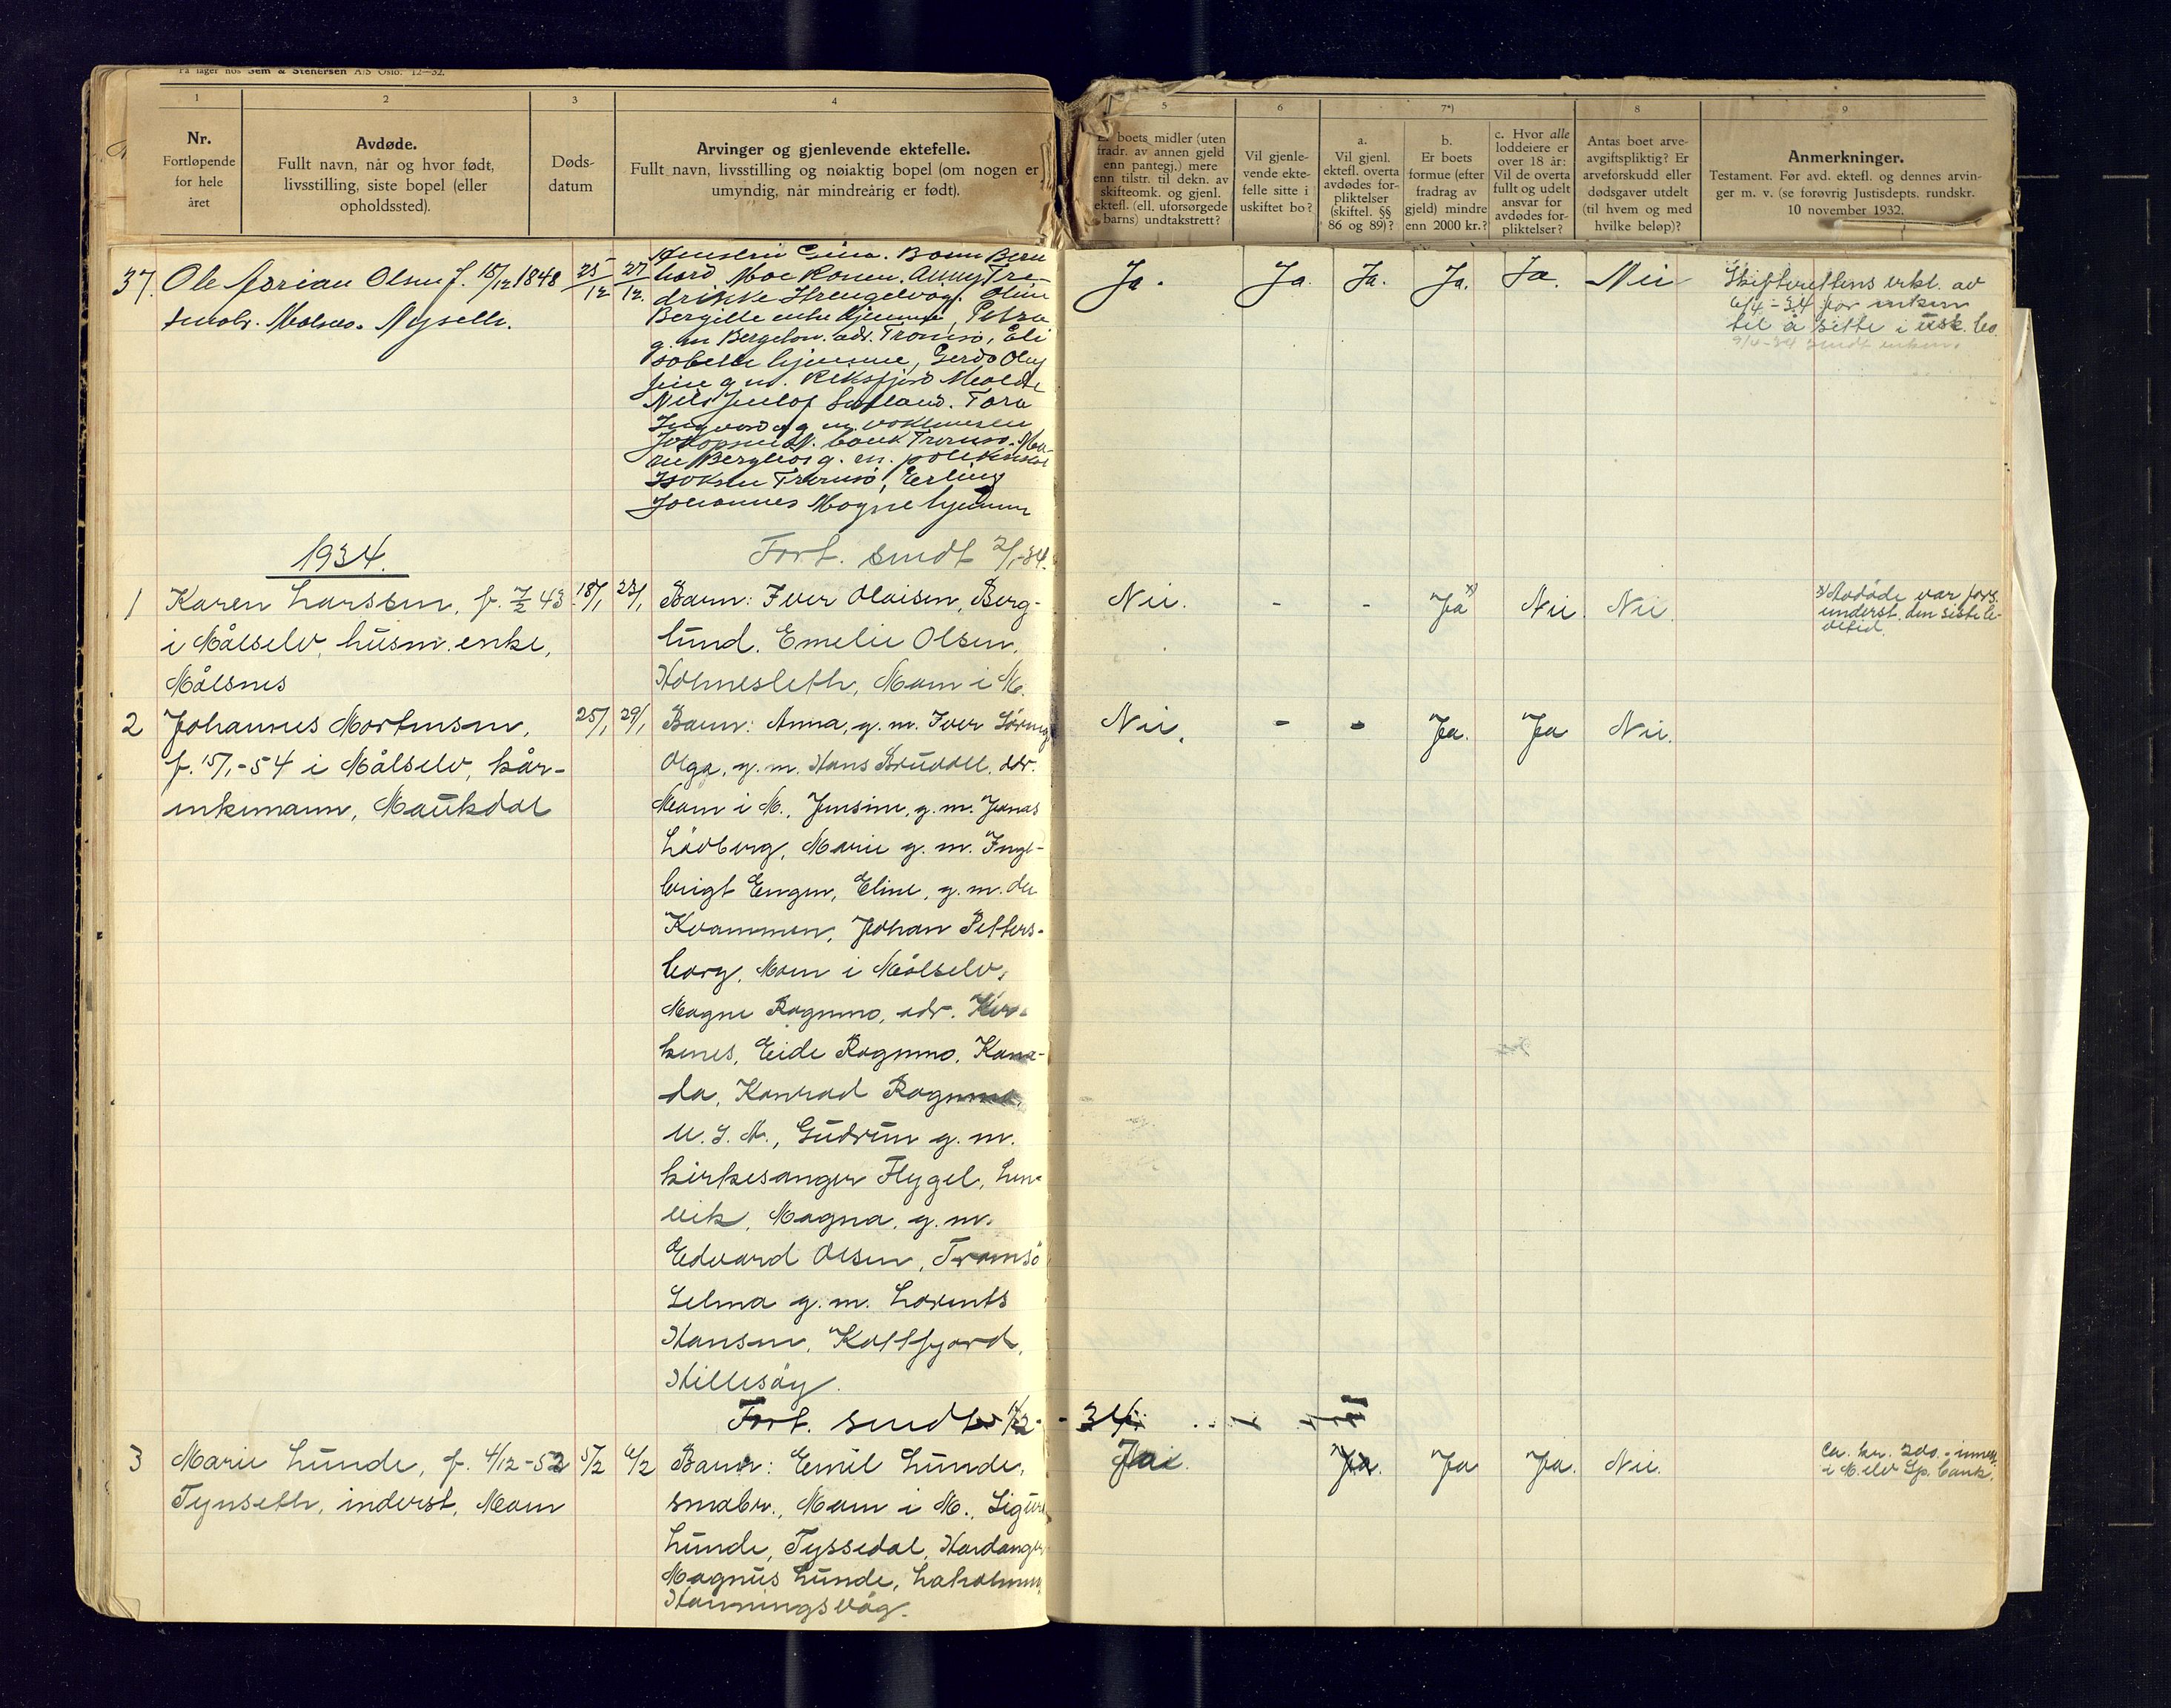 På lager hos Sem & Stenersen A/S Oslo. 12—32.
1 2 3 4 5 6 7*) 8 9
Nr.
Fortløpende
for hele
året
Avdøde.
Fullt navn, når og hvor født,
livsstilling, siste bopel (eller
opholdssted).
Døds-
datum
Arvinger og gjenlevende ektefelle.
Fullt navn, livsstilling og nøiaktig bopel (om nogen er
umyndig, når mindreårig er født).
Er boets midler (uten
fradr. av annen gjeld
enn pantegj.) mere
enn tilstr. til dekn. av
skifteomk. og gjenl.
ektefl. (ell. uforsørgede
barns) undtakstrett?
Vil gjenle-
vende ekte-
felle sitte i
uskiftet bo?
a.
Vil gjenl.
ektefl. overta
avdødes for-
pliktelser
(skiftel. §§
86 og 89)?
b.
Er boets
formue (efter
fradrag av
gjeld) mindre
enn 2000 kr.?
c. Hvor alle
loddeiere er
over 18 år:
Vil de overta
fullt og udelt
ansvar for
avdødes for-
pliktelser?
Antas boet arve-
avgiftspliktig? Er
arveforskudd eller
dødsgaver utdelt
(til hvem og med
hvilke beløp)?
Anmerkninger.
Testament. Før avd. ektefl. og dennes arvin-
ger m. v. (se forøvrig Justisdepts. rundskr.
10 november 1932.
37. Ole Adrian Olsen f. 15/12 1848
Målsnes
25/12 27/12.
hard Moe
drikke Strengelvåg.
Bergitte hjemme, Petra
g. m. Bergeton. adr. Tromsø, Eli
hjemme, Gerda
g. m.
Nils
g. m.
bank Tromsø
g. m.
Tromsø, Erling
Johannes Magne hjemme
Ja. Ja. Ja. Ja. Ja. Nei
Skifterettens erkl. av
6/4-34 for enken
til å sitte i usk. bo.
9/4-34 sendt enken.
Fort. sendt 2/1-34.
1934.
1 Karen Larssen, f. 7/2 43 18/1 23/1 Barn: Iver Olaisen, Berg-
i Målselv, husm. enke, lund. Emelie Olsen,
Målsnes Holmesleth, Moen i M.
Nei. - - Ja x) Nei. Nei.
x) Avdøde var fors.
underst. den siste le-
vetid.
2 Johannes Mortensen, 25/1 29/1 Barn: Anna, g. m. Iver
f. 15/1-54 i Målselv, kår- Olga, g. m. Hans Bruvoll, adr.
enkemann, Maukdal Moen i M., Jensine, g. m. Jonas
Nei. - - Ja. Ja Nei.
Lövberg, Marie g. m. Inge-
brigt Engen, Eline, g. m. do
Kvammen, Johan Petters-
borg, Moen i Målselv,
Magne Rognmo, adr. Kir-
kenes, Eide Rognmo, Kana-
da, Konrad Rognmo,
U.S.A., Gudrun g. m.
kirkesanger Flygel, Len-
vik, Magna, g. m.
Edvard Olsen, Tromsö
Selma g. m. Lorents
Hansen, Kattfjord,
Hillesöy.
Fort. sendt 12/2-34
3 Marie Lunde, f. 4/12-52 5/2 6/2 Barn: Emil Lunde,
Tynseth, inderst, Moen småbr., Moen i M., Sigurd
Lunde, Tyssedal, Hardanger
Magnus Lunde,
Honningsvåg.
Ja. Ja Ja. Nei.
Ca. kr. 200.- innest.
i M.elv Sp. bank.